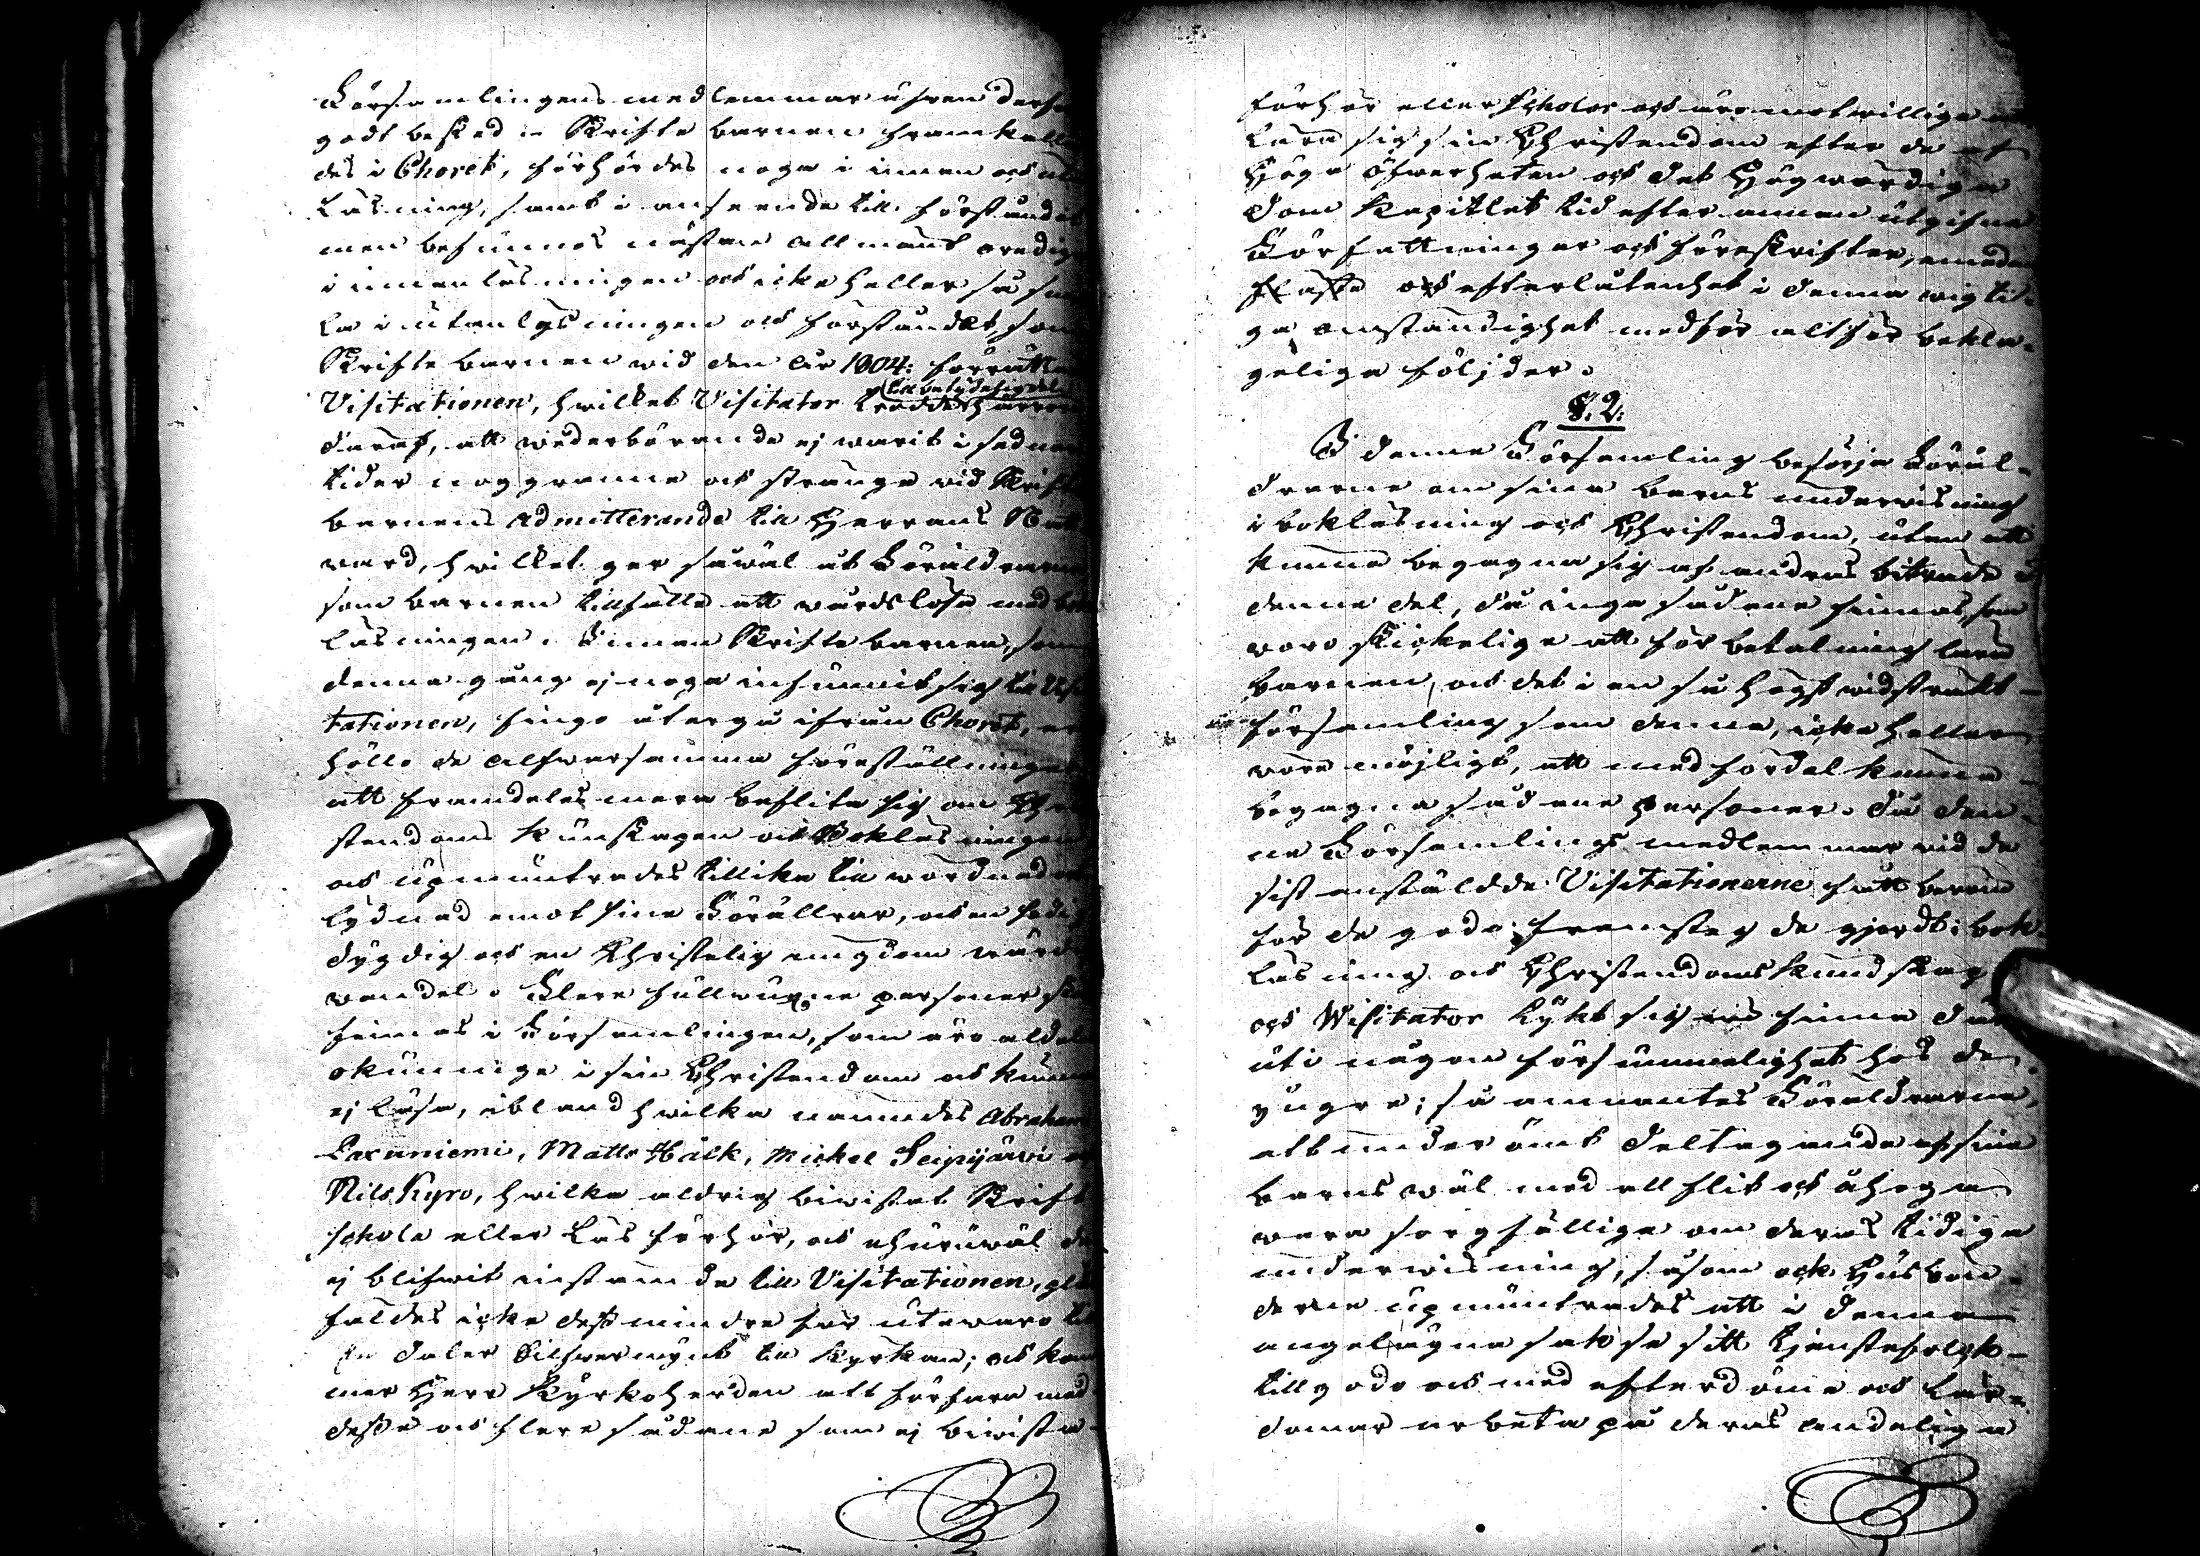 Församlingens medlemmar äfven derföre
godt besked. Skrifte barnen framkalla
des i Choret, förhördes noga i innan och utan
Läsning, samt i anseende till förståndet
men befunnos nästan allmänt oredige
i innanläsningen och icke heller så snä
la i utanläsningen och förståndet, som
Skrifte barnen wid den År 1804: förrättade
till betydelig del
Visitationen, hwilket Visitator trodde härröra
deraf, att wederbörande ej warit i sednare
tider noggranne och stränge wid Skrifte
barnens admitterande till Herrans Natt
ward, hwilket ger såwäl åt Föräldrarne
som barnen tillfälle att wårdslösa med bok
läsningen. Innan Skrifte barnen, som
denna gång ej noga infunnit sig till Visi
tationen, fingo återgå ifrån Choret, er
höllo de alfwarsamma föreställningar
att framdeles mera beflita sig om Chri
stendoms kunskapen och Bokläsningen
och upmuntrades tillika till wördnad och
lydnad emot sine Föräldrar, och en sedig
dygdig och en Christelig ungdom wärdig
wandel. Flere fullwuxne personer skola
finnas i Församlingen, som äro aldeles
okunnige i sin Christendom och kunna
ej läsa, ibland hwilka nämndes Abraham
Laxuniemi, Matts Hälk, Michel Seipijärvi och
Nils Kyro, hwilka aldrig biwistat Skrift
schola eller Läsförhör, och ehuruwäl de
ej blifwit instämde till Visitationen,
fäldes icke dess mindre för utewaro till
en daler Silfwermynt till Kyrkan; och kom
mer Herr Kyrkoherden att förfara med
desse och flere sådane som ej biwista
förhör eller Scholor och äro motwillige at
lära sig sin Christendom efter de af
Höga Öfwerheten och det Högwördiga
Dom Kapitlet tid efter annan utgifna
Författningar och föreskrifter, emedan
och efterlåtenhet i denna wigti
ga omständighet medför altför bekla
geliga följder.
§. 2.
I denna Församling besörja Föräl
drarne om sina barns underwisning
i bokläsning och Christendom, utan att
kunna begagna sig af andras biträde i
denna del, då inga sådane finnas, som
woro skickelige att för betalning lära
barnen, och det i en så högst widsträkt
församling som denna, icke heller
wore möjligt, att med fördel kunna
begagna sådane personer. Då den
ne Församlings medlemmar wid de
sist anstäldde Visitationerne fått beröm
för de goda framsteg de gjordt i bok
läsning och Christendoms kundskap
och Wisitator tykt sig nu finna där
uti någon försummelighet hos de
yngre; så ammantes Föräldrarne,
att under ömt deltagande af sina
barns wäl med all flit och åhoga
wara sorgfällige om deras tidiga
underwisning, såsom ock Husbön
derne upmuntrades att i denna
angelägna sak se sitt tjenstefolk
till godo och med efterdöme och Lär
domar arbeta på deras andeliga